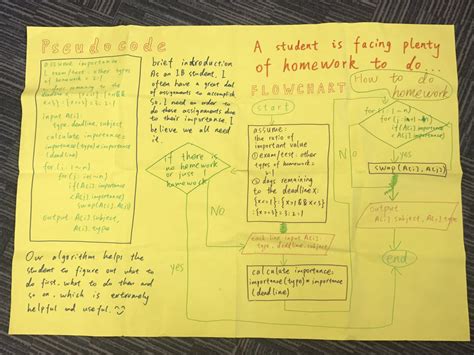 Pseudocode
assume importance
1 exam/test : other types
of homework = 2:1
input A[i]
type, deadline, subject
calculate importance:
importance(type) * importance
(deadline)
for(i: 1→n)
for(j: i→n)
if(A[i] importance
A[j] importance)
swap(A[i], A[j])
output A[i] subject,
A[i] type
Our algorithm helps the
student to figure out what to
do first, what to do then and
so on, which is extremely
helpful and useful.
brief indroduction
As an IB student, I
often have a great deal
of assignments to accomplish
So, I need an order to
do these assignments due
to their importance. I
believe we all need
it.
if there is
no homework
or just 1
homework
No
yes
A student is facing plenty
of homework to do...
FLOWCHART
start
assume:
the ratio of
important value
① exam/test : other
types of homework=
②days remaining
to the deadline x:
each line input A[i]
type, deadline, subject
calculate importance:
importance(type) * importance
(deadline)
How to do
homework
for(i: 1→n)
for(j: i→n)
if(A[i] importance
A[j] importance)
NO
yes
swap(A[i], A[j])
output
A[i] subject, A[i] type
end